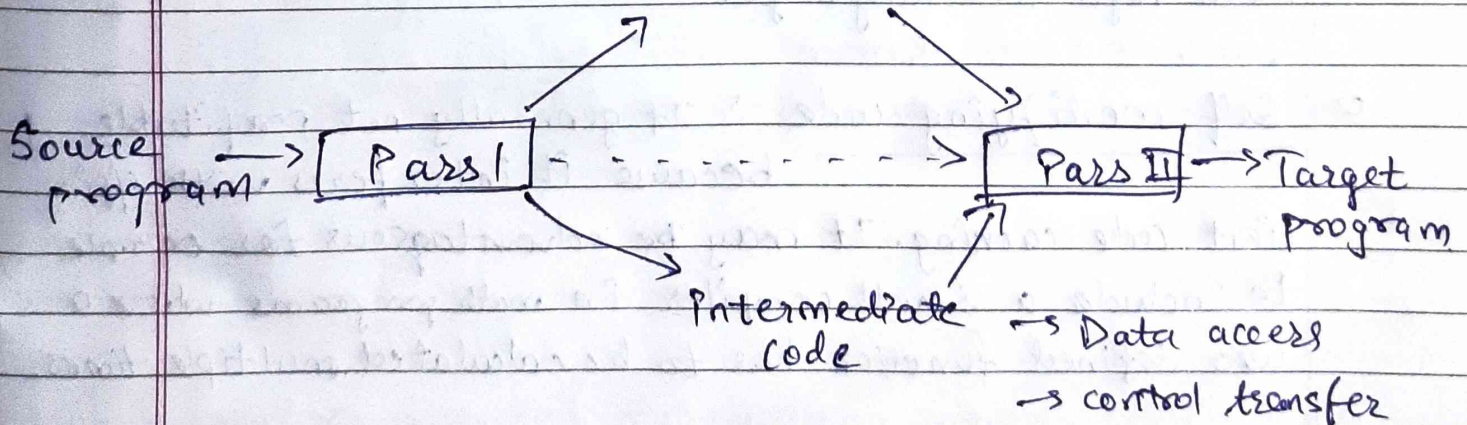 Source
program.
Pars I
Pars II
Target
program
Intermediate
code
→ Data access
→ control transfer